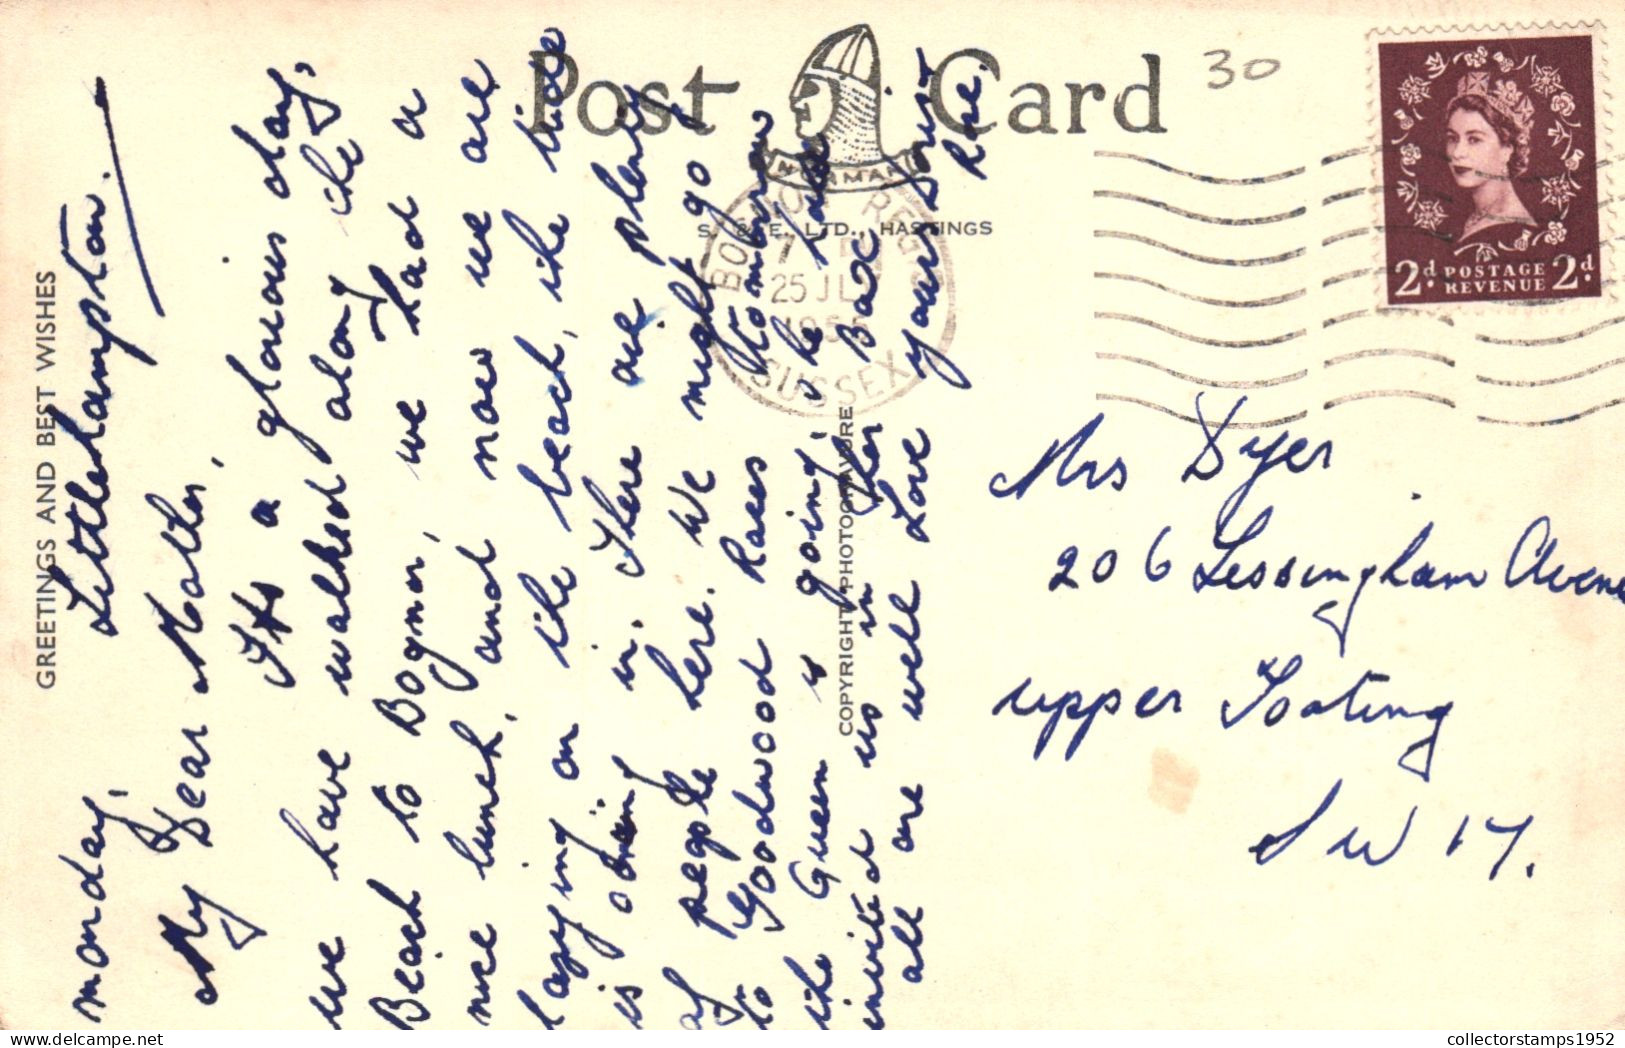 Post Card
30
NORMAN
S. & E. LTD., HASTINGS
BOGNOR REGIS
25 JL
SUSSEX
2d. POSTAGE REVENUE 2d.
GREETINGS AND BEST WISHES
COPYRIGHT PHOTOGRAVURE
Monday, Littlehampton.
My Dear Mother,
Its a glorious day,
we have walked along the
Beach to Bognor, we had a
nice lunch, and now we are
lazying on the beach, the tide
is coming in. There are plenty
of people here. We might go
to Goodwood Races tomorrow
the Queen is going, she has
invited us in her Box
all are well Love yours Doris
Rose.
Mrs Dyer
206 Lessingham Avenue
upper Tooting
S W 17.
collectorstamps1952